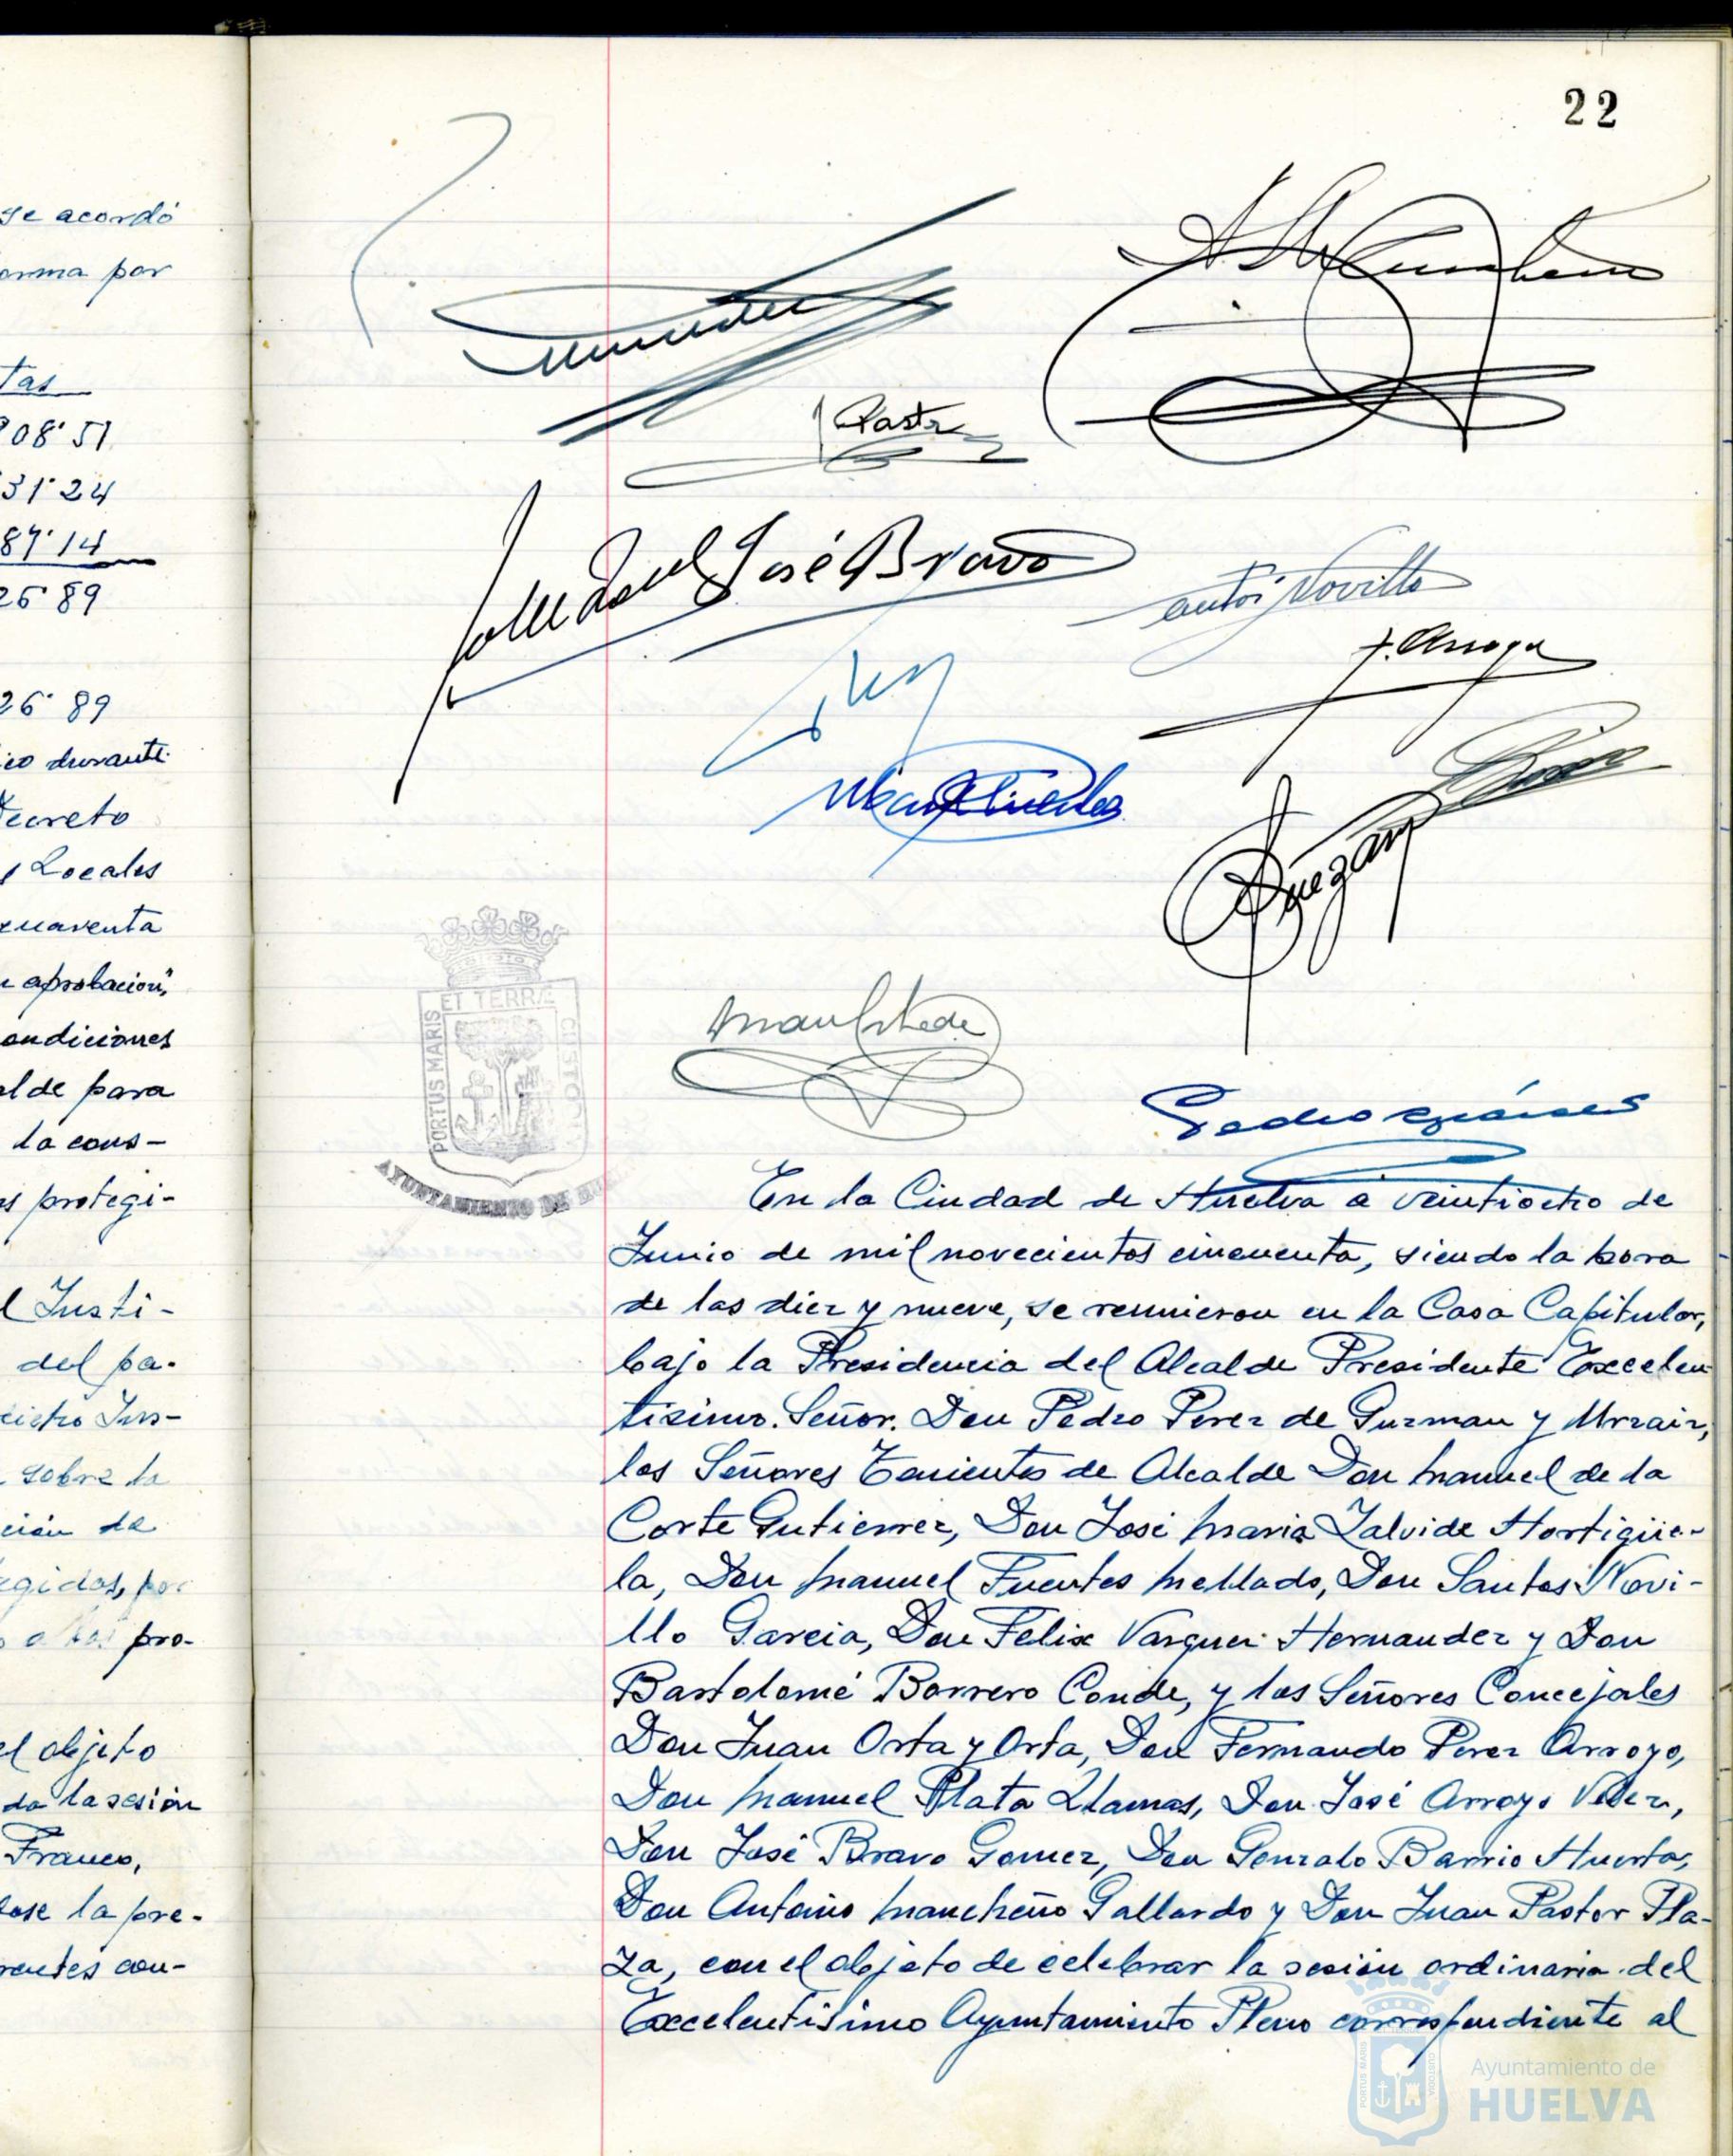 se acordó
por
tas
08'51
31'24
87'14
26'89
26'89
durante
Decreto
Locales
cuarenta
aprobación",
condiciones
para
la cons-
protegi-
Insti-
del pa-
sobre la
de
pro-
el objeto
la sesión
Franco,
la pre-
con-
22
Pastor
José Bravo
Santos Novillo
J. Arroyo
PORTUS MARIS ET TERRÆ CUSTODIA
AYUNTAMIENTO DE HUELVA
En la Ciudad de Huelva a veintiocho de
Junio de mil novecientos cincuenta, siendo la hora
de las diez y nueve, se reunieron en la Casa Capitular,
bajo la Presidencia del Alcalde Presidente Excelen
tisimo. Señor. Don Pedro Perez de Guzman y Urzaiz,
los Señores Tenientes de Alcalde Don Manuel de la
Corte Gutierrez, Don José Maria Zalvide Hortigüe-
la, Don Manuel Fuentes Mellado, Don Santos Novi-
llo Garcia, Don Felix Vazquez Hernandez y Don
Bartolomé Borrero Conde, y los Señores Concejales
Don Juan Orta y Orta, Don Fernando Perez Arroyo,
Don Manuel Plata Llamas, Don José Arroyo Velez,
Don José Bravo Gomez, Don Gonzalo Barrio Huerta,
Don Antonio Mancheño Gallardo y Don Juan Pastor Pla-
za, con el objeto de celebrar la sesión ordinaria del
Excelentisimo Ayuntamiento Pleno correspondiente al
PORTUS MARIS CUSTODIA
Ayuntamiento de
HUELVA